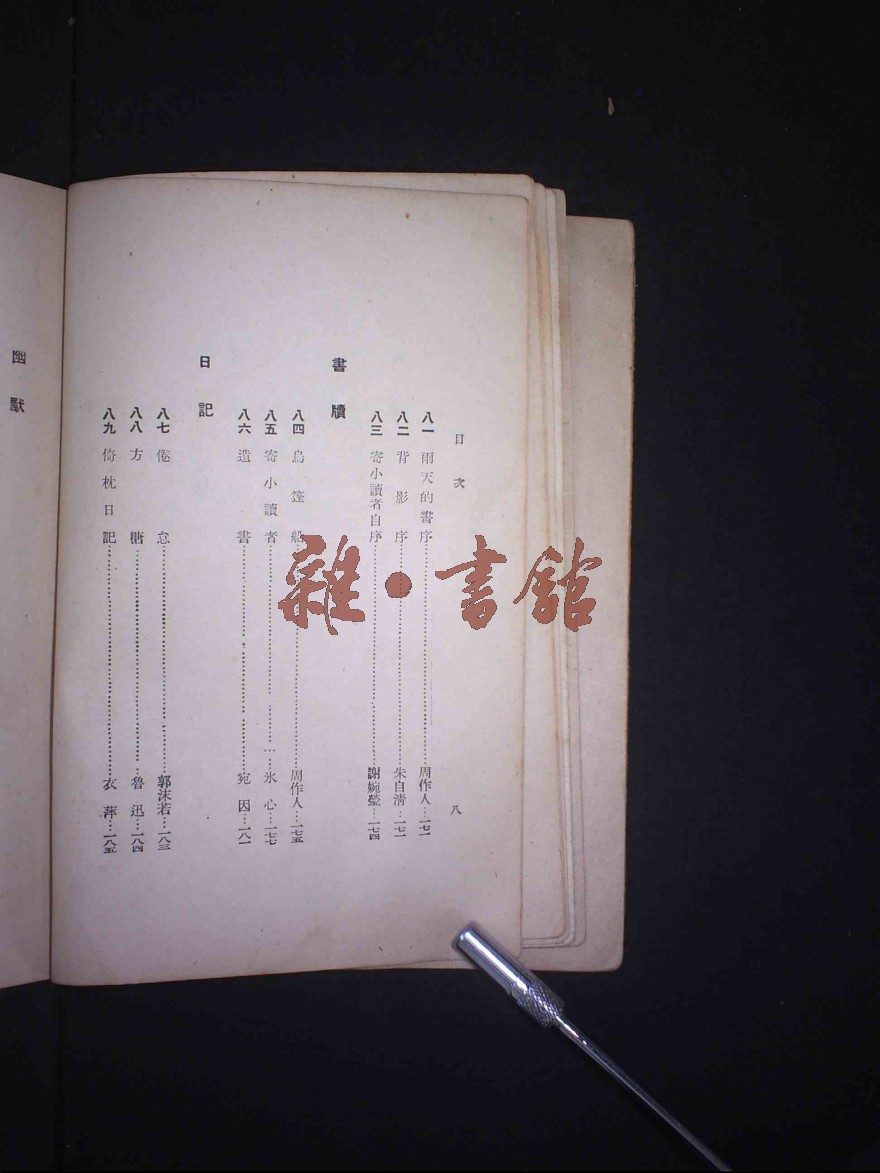 目次
八一 雨天的書序……周作人…一七一
八二 背影序……朱自清…一七二
八三 寄小讀者自序……謝婉瑩…一七四
書牘
八四 烏篷船……周作人…一七五
八五 寄小讀者……氷心…一七七
八六 遺書……宛因…一八一
日記
八七 倦怠……郭沫若…一八三
八八 方糖……魯迅…一八四
八九 倚枕日記……衣萍…一八五
八
幽默
雜·書館